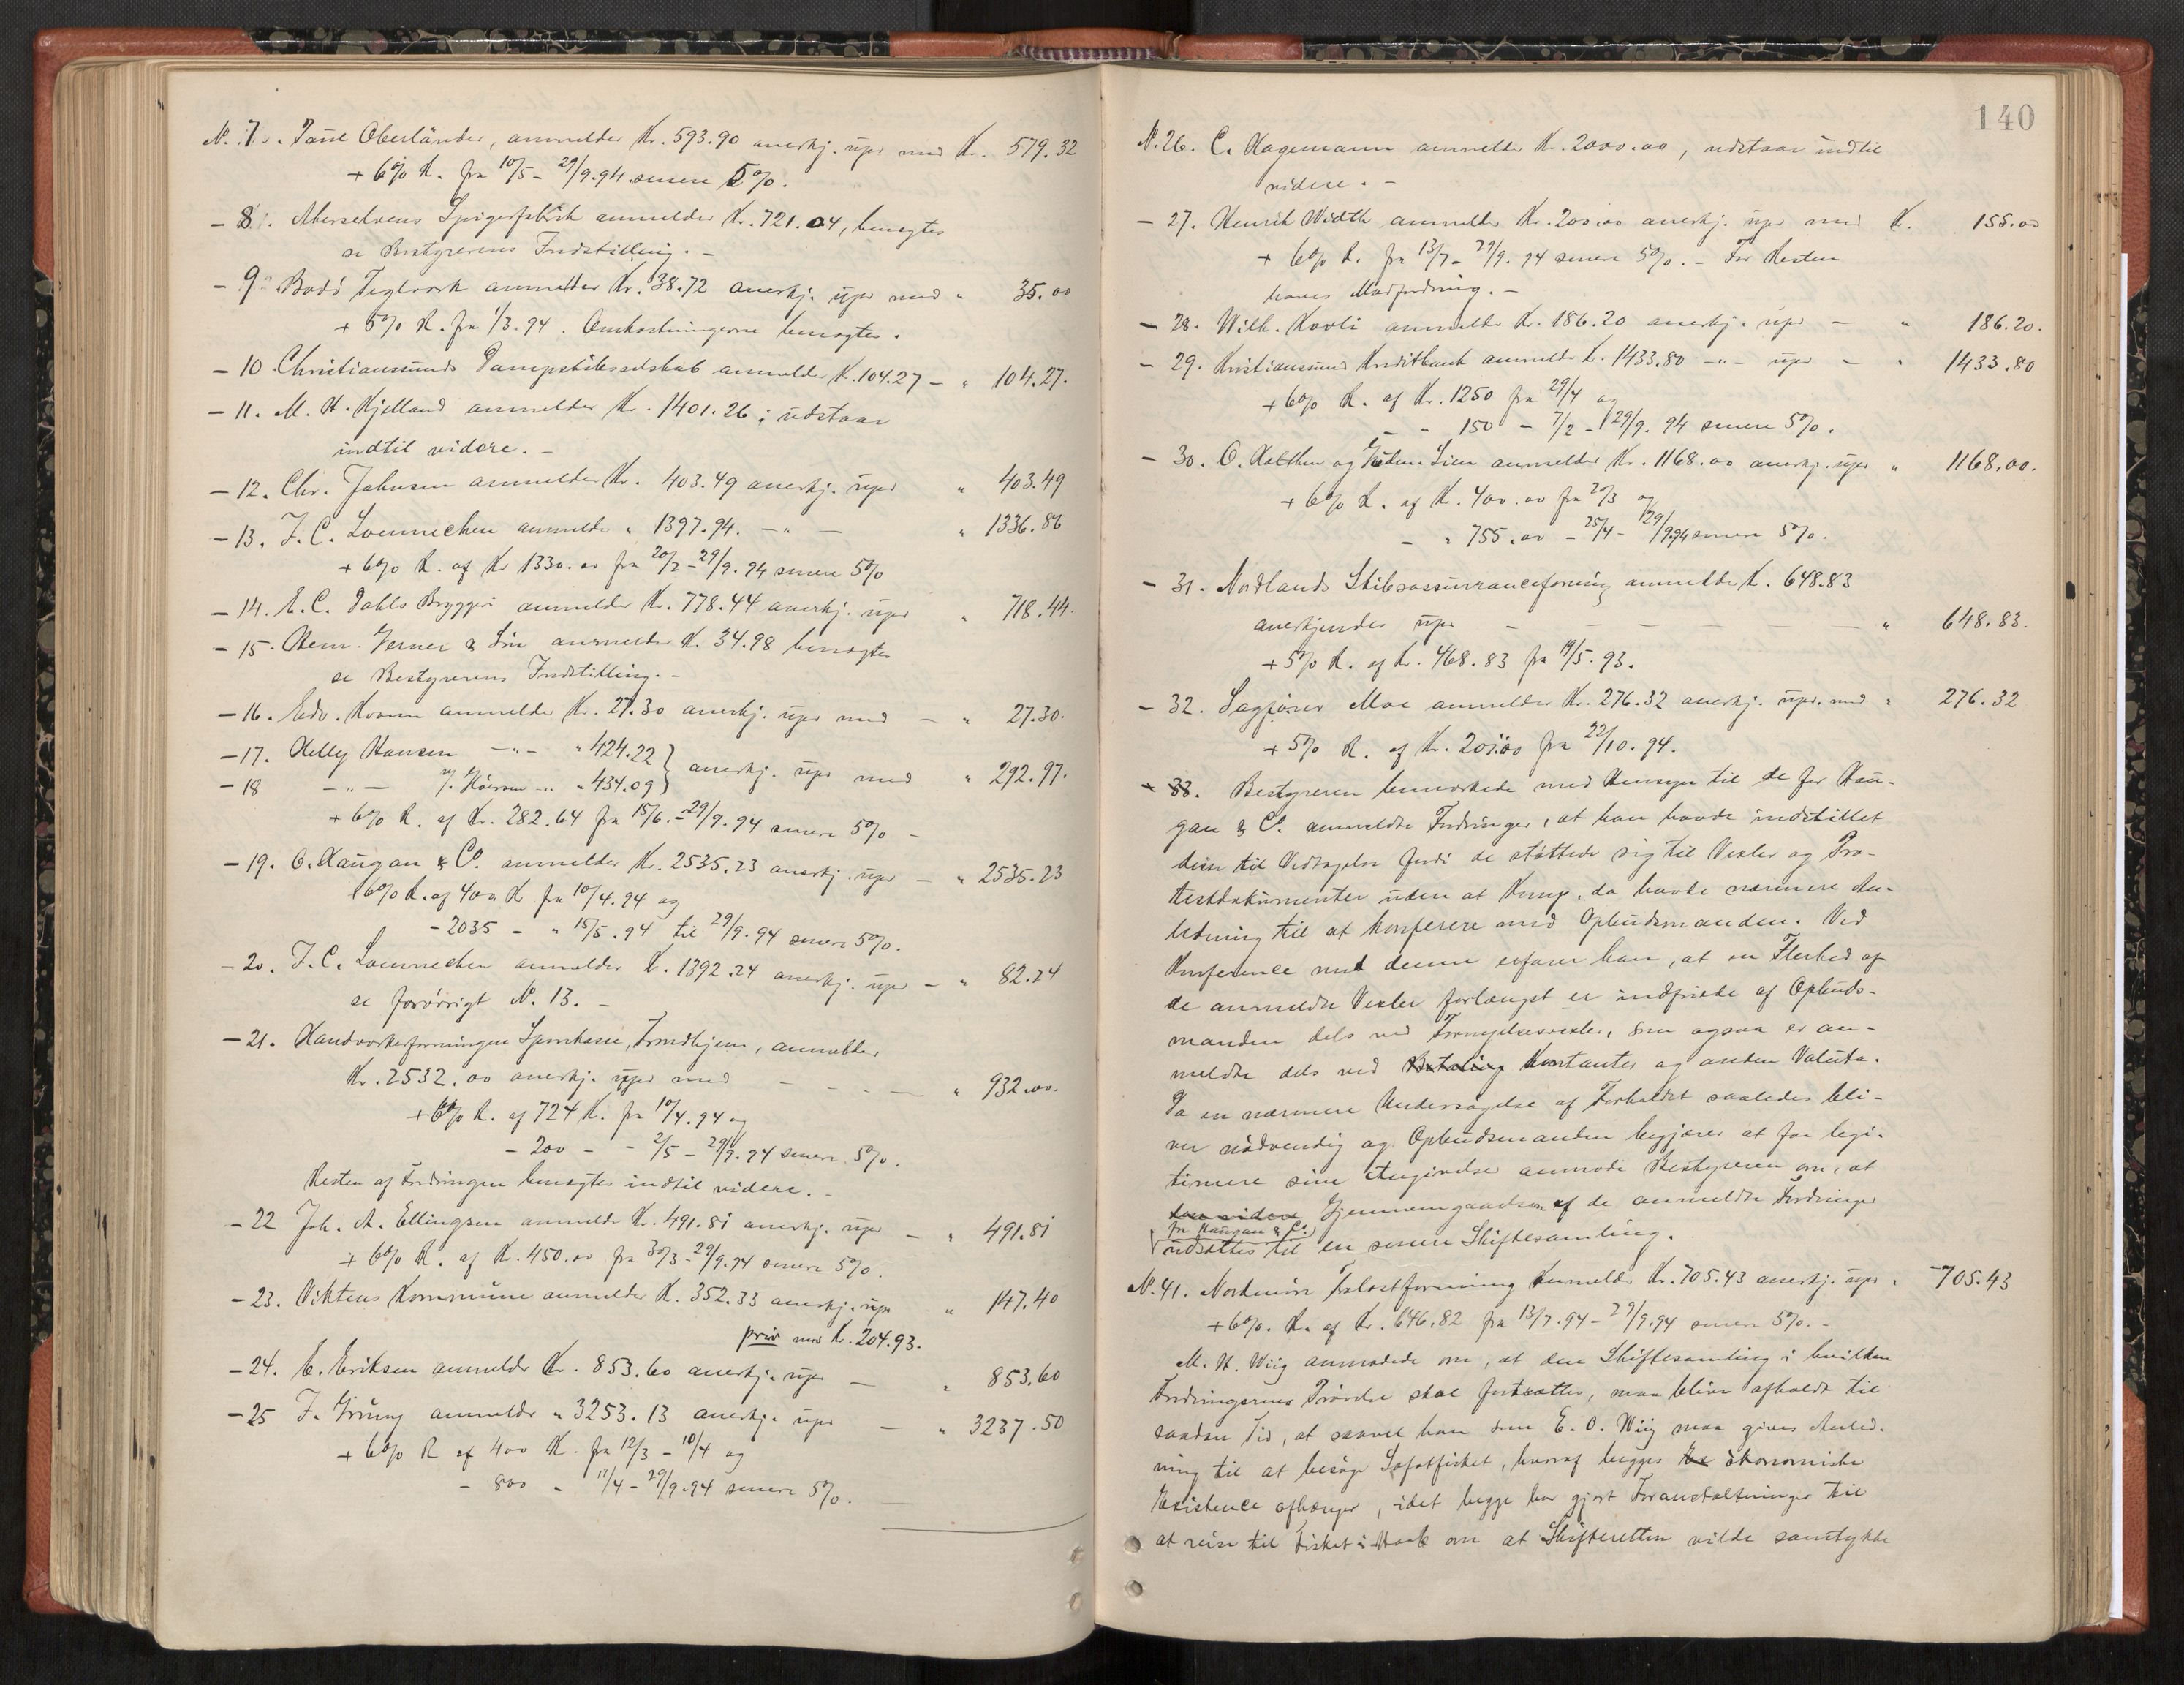 N. 7. Paul Oberländer, anmelder Kr. 593.90 anerkj. upr med Kr. 579.32
+ 6% R. fra 10/5 - 29/9.94 senere 5%.
- 8. Spigerfabrik anmelder Kr. 721.04, benegtes
se Bestyrerens Indstilling. -
- 9. Bodö Teglværk anmelder Kr. 38.72 anerkj. upr med " 35.00
+ 5% R. fra 1/3.94. Omkostningerne benegtes.
- 10. Christianssunds Dampskibsselskab anmelder K. 104.27 - " 104.27.
- 11. M. H. Kjelland anmelder Kr. 1401.26; udstaar
indtil videre. -
- 12. Chr. Johnsen anmelder Kr. 403.49 anerkj. upr " 403.49
- 13. F. C. Loennechen anmelde " 1397.94. - " - " 1336.86
+ 6% R. af Kr 1330.00 fra 20/2 - 29/9.94 senere 5%
- 14. E. C. Dahls Bryggeri anmelder Kr. 778.44 anerkj. upr " 718.44.
- 15. Herm. Gerner & Sön anmelder K. 34.98 benegtes
se Bestyrerens Indstilling. -
- 16. Edv. Kvam anmelder Kr. 27.30 anerkj. upr med - " 27.30.
- 17. Helly Hansen - " - " 424.22 } anerkj. upr med " 292.97.
- 18 - " - " 434.09 }
+ 6% R. af Kr. 282.64 fra 15/6. - 29/9.94 senere 5% -
- 19. O. Haugan & Co. anmelder Kr. 2535.23 anerkj. upr - " 2535.23
6% R. af 400 Kr fra 10/4.94 og
- 2035 - " 15/5.94 til 29/9.94 senere 5%.
- 20. F. C. Loennechen anmelder K. 1392.24 anerkj. upr - " 82.24
se forövrigt N. 13. -
- 21. Haandværkerforeningens Sparekasse, Trondhjem, anmelder
Kr. 2532.00 anerkj. upr med - - - - " 932.00.
+ 6% R. af 724 K. fra 10/4.94 og
- 200 - - 2/5 - 29/9.94 senere 5%.
Resten af Fordringen benegtes indtil videre. -
- 22 Joh. A. Ellingsen anmelder Kr. 491.81 anerkj. upr - " 491.81
+ 6% R. af K. 450.00 fra 30/3 - 29/9.94 senere 5%.
- 23. Viktens Kommune anmelder K. 352.33 anerkj. upr " 147.40
prior med K. 204.93.
- 24. C. Eriksen anmelder Kr. 853.60 anerkj. upr - " 853.60
- 25 F. Grüng anmelder " 3253.13 anerkj. upr - " 3237.50
+ 6% R af 400 K. fra 12/3 - 10/4 og
- 800 " 11/4 - 29/9.94 senere 5%.
140
N. 26. C. Hagemann anmelder Kr. 2000.00, udstaar indtil
videre. -
- 27. Henrik Width anmelder Kr. 200.00 anerkj. upr med K. 155.00
+ 6% R. fra 13/7 - 29/9.94 senere 5%. - For Resten
haves Modfordring. -
- 28. Wilh. Hovli anmelder K. 186.20 anerkj. upr - " 186.20.
- 29. Kristianssunds Kreditbank anmelder K. 1433.80 - " - upr - " 1433.80
+ 6% R. af Kr. 1250 fra 29/4 og
- " 150 - 7/2 - 29/9.94 senere 5%.
- 30. O. Lien anmelder Kr. 1168.00 anerkj. upr " 1168.00.
+ 6% R. af K. 400.00 fra 20/3 og
- " 755.00 - 25/4 - 29/9.94 senere 5%.
- 31. Nordlands Skibsassuranceforening anmelder K. 648.83
anerkjendes upr - - - - " 648.83.
+ 5% R. af Kr. 468.83 fra 19/5.93.
- 32. Sagförer Moe anmelder Kr. 276.32 anerkj. upr. med " 276.32
+ 5% R. af Kr. 201.00 fra 22/10.94.
- 33. Bestyreren bemærkede med Hensyn til de for Hau-
gan & Co. anmeldte Fordringer, at han havde indstillet
disse til Vedtagelse fordi de stöttede sig til Vexler og Pro-
testdokumenter uden at Komp. da havde nærmere An-
ledning til at konferere med Opbudsmanden. Ved
Konference med denne erfarer han, at en Flerhed af
de anmeldte Vexler forlængst er indfriede af Opbuds-
manden dels ved Fornyelsesvexler, som ogsaa er an-
meldte dels ved Betaling Kontanter og anden Valuta.
Da en nærmere Undersögelse af Forholdet saaledes bli-
ver nödvendig og Opbudsmanden begjærer at faa legi-
timere sine Angivelser anmode Bestyreren om, at
Gjennemgaaelsen af de anmeldte Fordringer
fra Haugan & Co.
udsættes til en senere Skiftesamling.
N. 41. Nordmöre Fællesforening anmelder Kr. 705.43 anerkj. upr. " 705.43
+ 6%. R. af Kr. 646.82 fra 13/7.94 - 29/9.94 senere 5%. -
M. H. Wiig anmodede om, at den Skiftesamling i hvilken
Fordringernes Prövelse skal fortsættes, maa blive afholdt til
saadan Tid, at saavel han som E. O. Wiig maa gives Anled-
ning til at besöge Lofotfisket, hvoraf begges ökonomiske
Existence afhænger, idet begge har gjort Foranstaltninger til
at reise til Fisket i Haab om at Skifteretten vilde samtykke